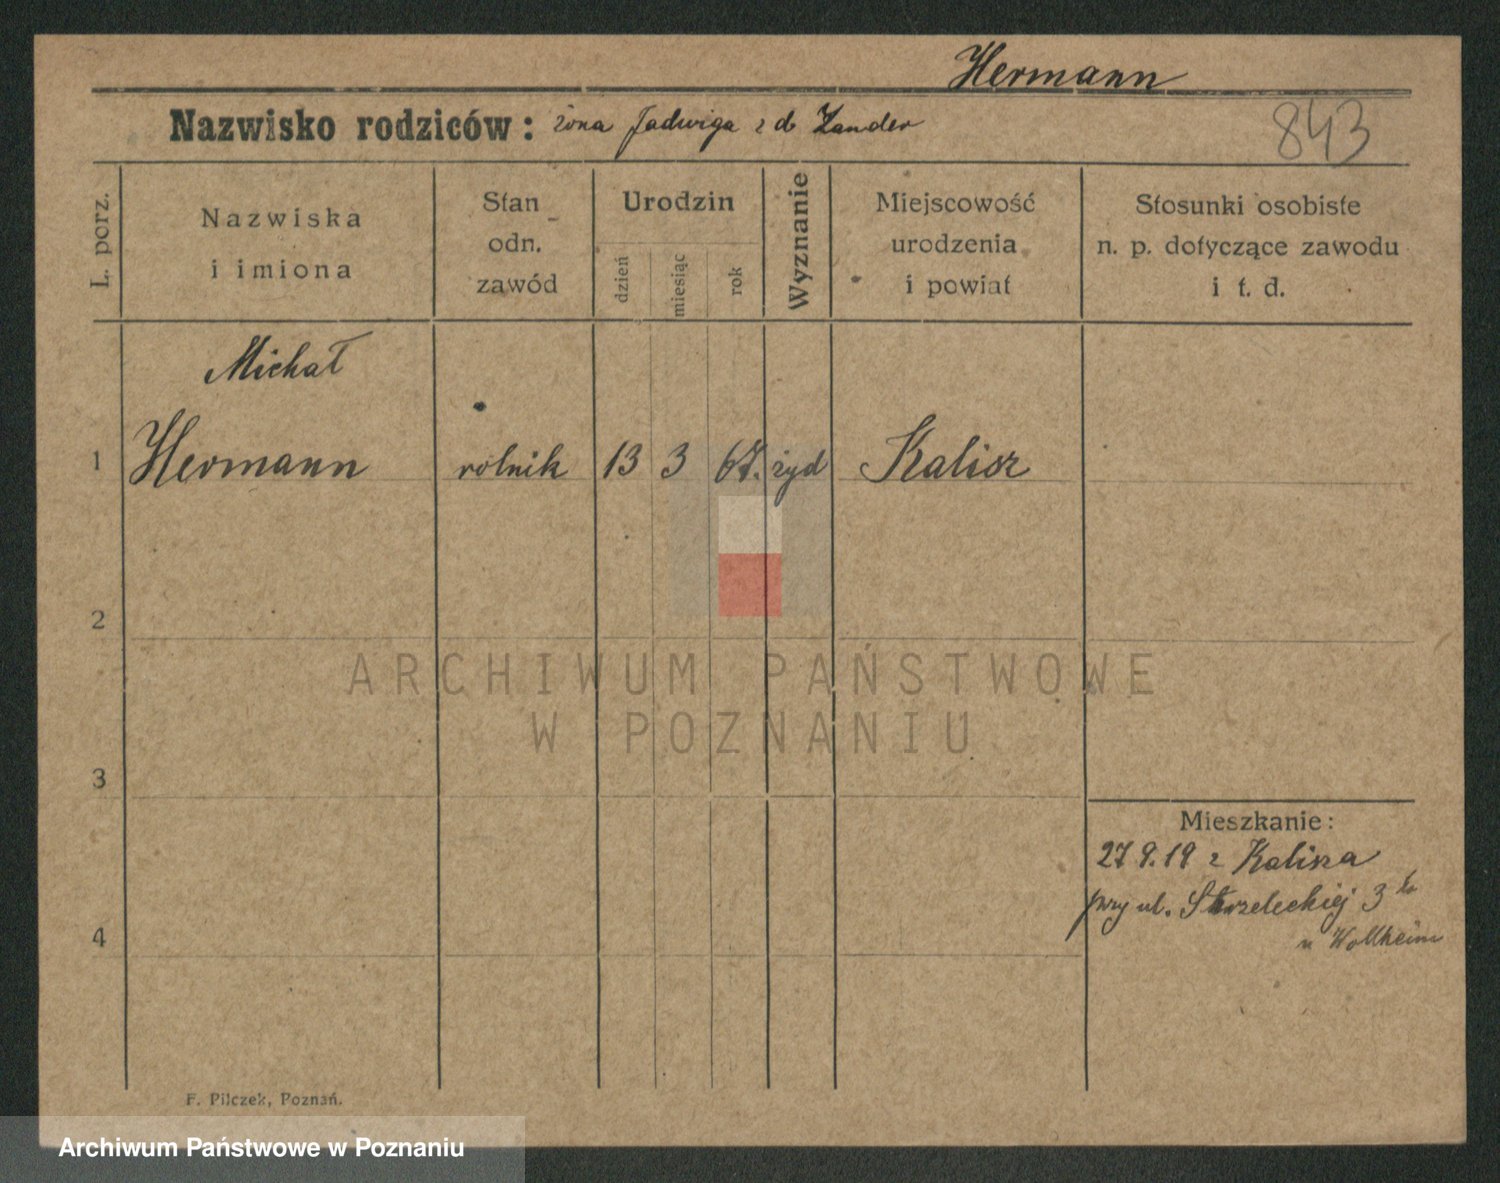 Hermann
843
Nazwisko rodziców: żona Jadwiga z d Zander
L. porz.
Nazwiska
i imiona
Stan
odn.
zawód
Urodzin
dzień
miesiąc
rok
Wyznanie
Miejscowość
urodzenia
i powiat
Stosunki osobiste
n. p. dotyczące zawodu
i t. d.
Michał
1 Hermann rolnik 13 3 67. żyd Kalisz
2
ARCHIWUM PAŃSTWOWE
W POZNANIU
3
Mieszkanie:
27 9.19 z Kalisza
przy ul. Strzeleckiej 3
u Wollheim
4
F. Pilczek, Poznań.
Archiwum Państwowe w Poznaniu